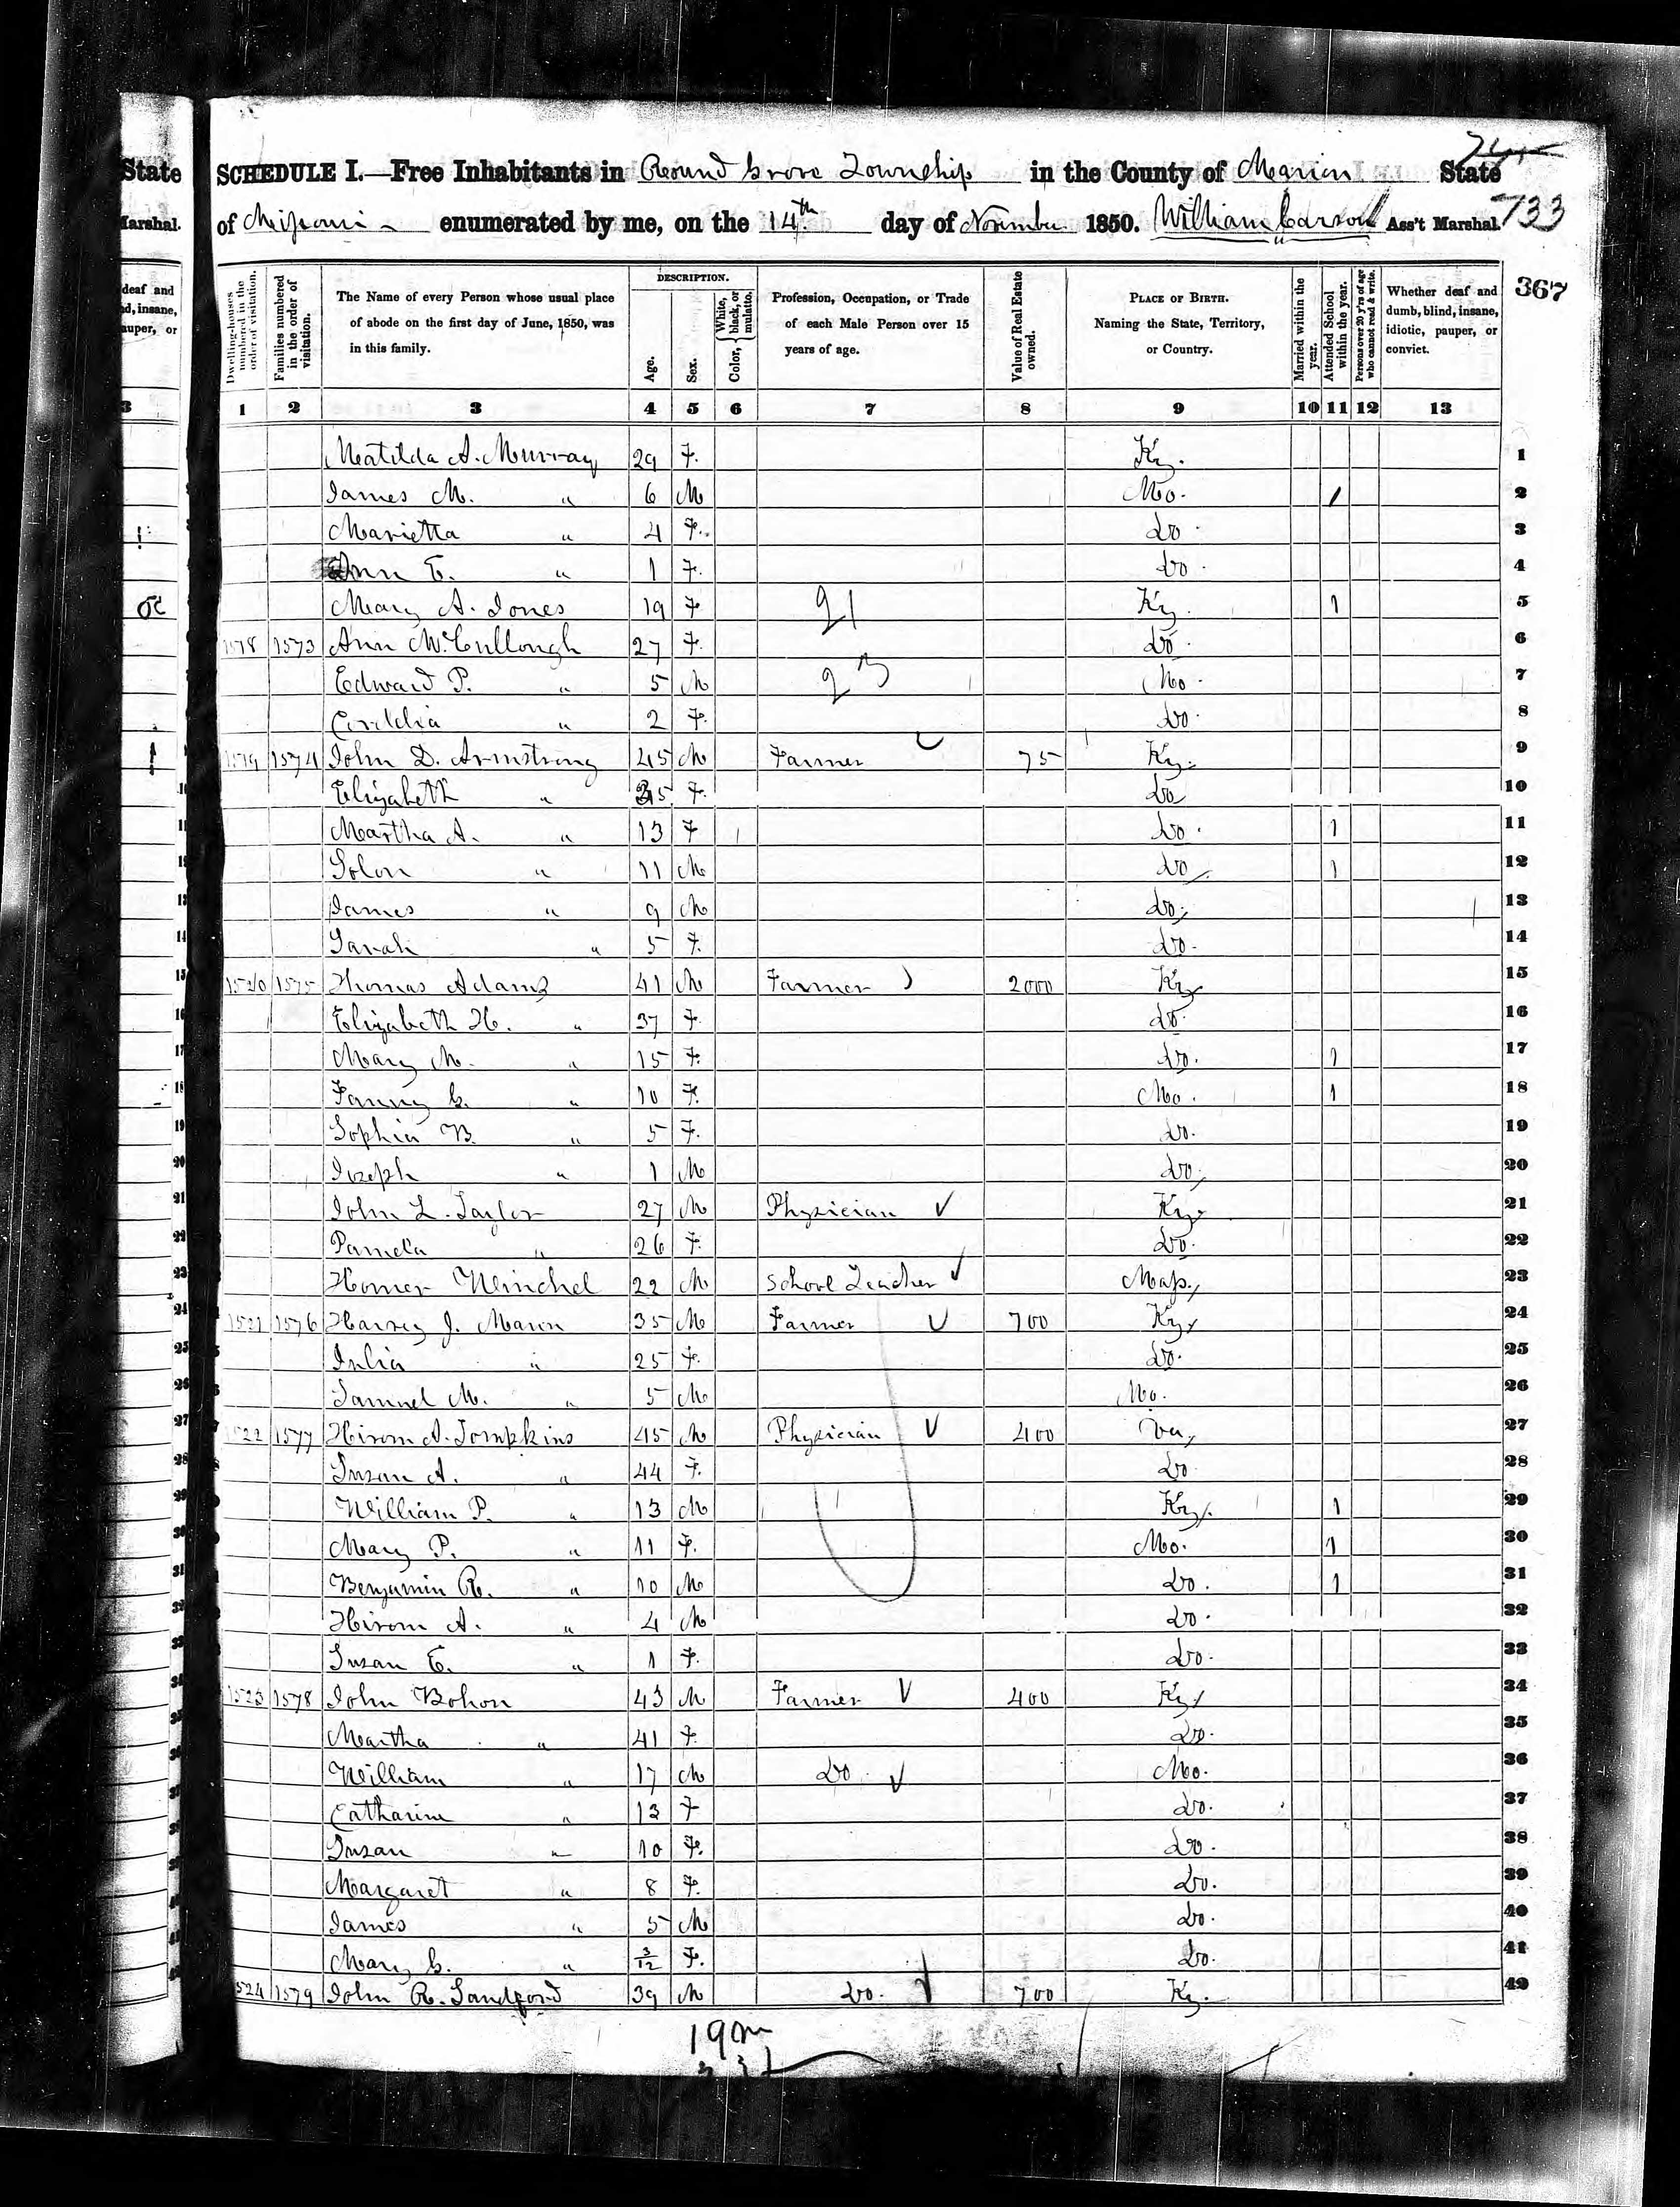 State
Marshal.
SCHEDULE I.—Free Inhabitants in Round Grove Township in the County of Marion State
of Missouri enumerated by me, on the 14th day of November 1850. William Carson Ass't Marshal.
733
367
Dwelling-houses numbered in the order of visitation.
Families numbered in the order of visitation.
The Name of every Person whose usual place of abode on the first day of June, 1850, was in this family.
DESCRIPTION.
Age.
Sex.
Color, White, black, or mulatto.
Profession, Occupation, or Trade of each Male Person over 15 years of age.
Value of Real Estate owned.
PLACE OF BIRTH. Naming the State, Territory, or Country.
Married within the year.
Attended School within the year.
Persons over 20 y'rs of age who cannot read & write.
Whether deaf and dumb, blind, insane, idiotic, pauper, or convict.
1 2 3 4 5 6 7 8 9 10 11 12 13
Matilda A. Murray 29 F. Ky. 1
James M. " 6 M Mo. 1 2
Marietta " 4 F. Do. 3
Ann E. " 1 F. Do. 4
Mary A. Jones 19 F 21 Ky. 1 5
1573 Ann McCullough 27 F. Do. 6
Edward P. " 5 M 23 Mo 7
" 2 F. Do. 8
1574 John D. Armstrong 45 M Farmer 75 Ky. 9
Elizabeth " F. Do 10
Martha A. " 13 F Do. 1 11
Solon " 11 M Do. 1 12
James " 9 M Do. 13
Sarah " 5 F. Do. 14
1520 1575 Thomas Adams 41 M Farmer 2000 Ky 15
Elizabeth H. " 37 F. Do. 16
Mary M. " 15 F. Do. 1 17
Fanny G. " 10 F. Mo. 1 18
Sophia B. " 5 F. Do. 19
Joseph " 1 M Do. 20
John L. Taylor 27 M Physician Ky. 21
Pamela " 26 F. Do. 22
Homer Winchel 22 M School Teacher Mass. 23
1521 1576 Harvey J. Mann 35 M Farmer 700 Ky. 24
Julia " 25 F. Do. 25
Samuel M. " 5 M Mo. 26
1522 1577 Hirom A. Tompkins 45 M Physician 400 Va. 27
Susan A. " 44 F. Do 28
William P. " 13 M Ky. 1 29
Mary P. " 11 F. Mo. 1 30
Benjamin R. " 10 M Do. 1 31
Hirom A. " 4 M Do. 32
Susan E. " 1 F. Do. 33
1523 1578 John Bohon 43 M Farmer 400 Ky 34
Martha " 41 F. Do. 35
William " 17 M Do. Mo. 36
Catharine " 13 F Do. 37
Susan " 10 F. Do. 38
Margaret " 8 F. Do. 39
James " 5 M Do. 40
Mary G. " 3/12 F. Do. 41
1524 1579 John R. Sandford 39 M Do. 700 Ky. 42
19m